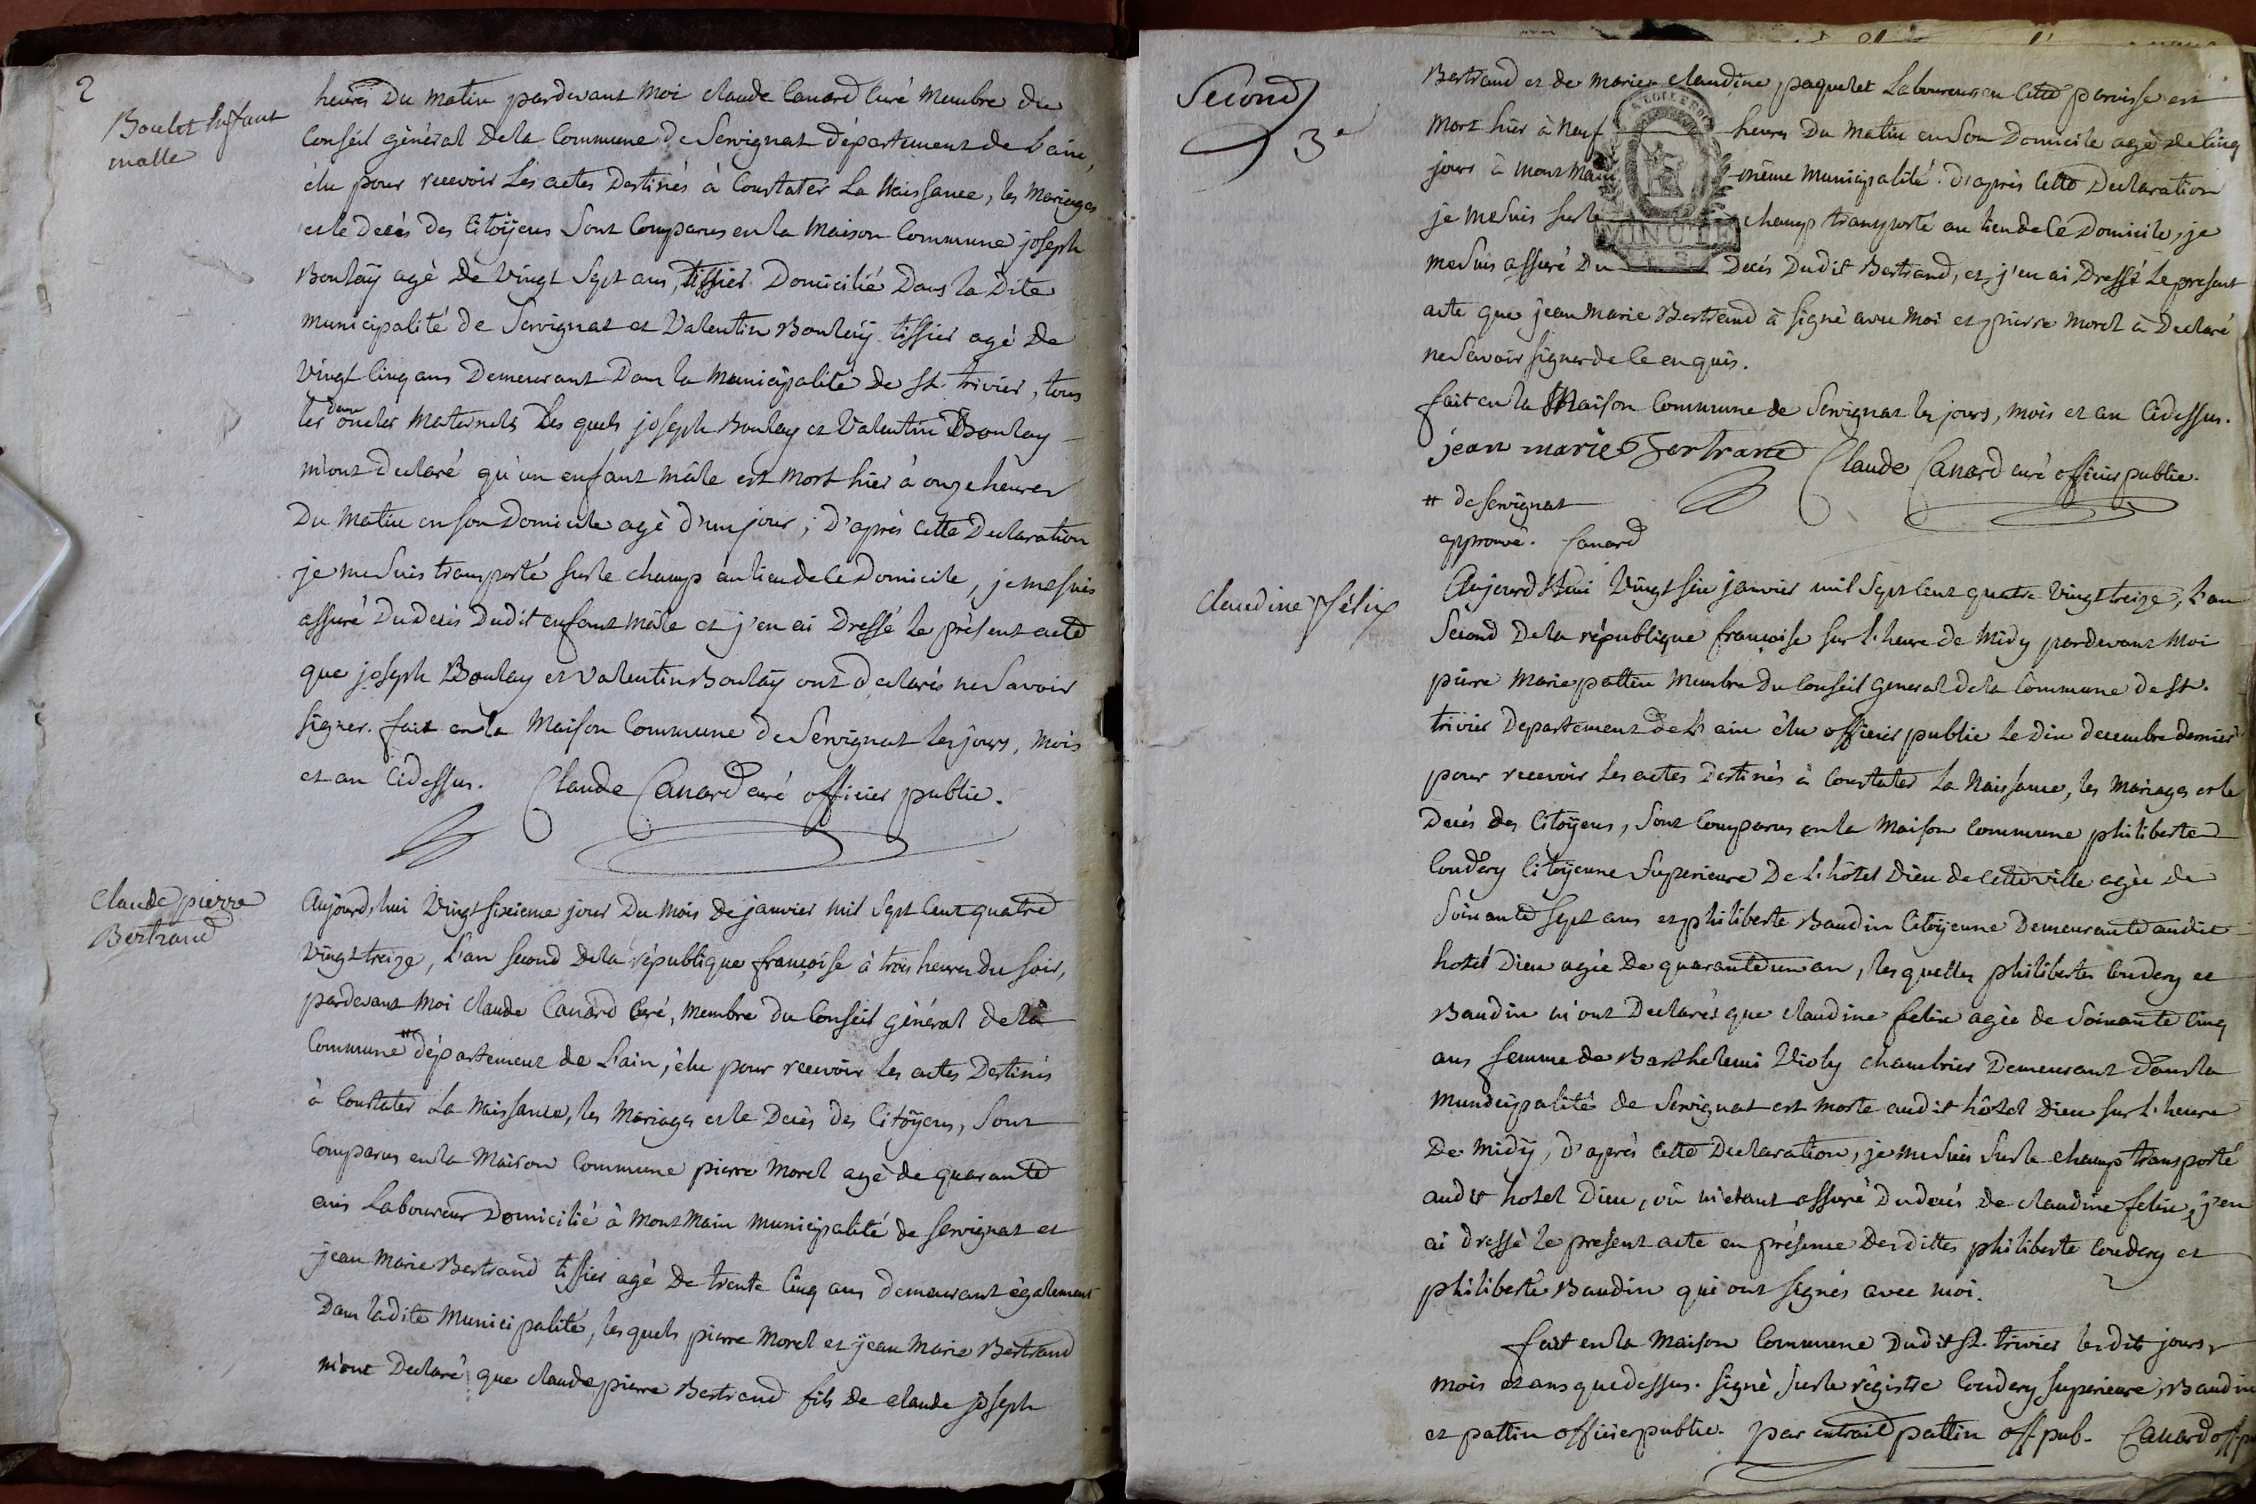 2
Boulet Enfant
malle
heures Du matin pardevant Moi claude Canard Curé Membre du
Conseil général De la Commune de Servignat département de L'ain,
élu pour recevoir Les actes Destinés à Constater La Naissance, les Mariages
et le Décès des Citoÿens Sont Comparus en la Maison Commune joseph
Boulaÿ agé De Vingt Sept ans, tissier Domicilié Dans la Dite
Municipalité de Servignat et Valentin Boulaÿ tissier agé De
Vingt Cinq ans Demeurant Dans la Municipalité de St. trivier, tous
les deux oncles Maternels Les quels joseph Boulay et Valentin Boulay
m'ont declaré qu'un enfant mâle est mort hier à onze heures
Du Matin en son Domicile agé d'un jour ; D'après Cette Declaration
je me Suis transporté Sur le champ au lieu de Ce Domicile, je me suis
assuré Du decès Dudit enfant mâle et j'en ai Dressé Le présent acte
que joseph Boulay et Valentin Boulaÿ ont declarés ne Savoir
Signer. fait en la Maison Commune De Servignat les jours, mois
et an Cidessus. Claude Canard curé officier public.
claude pierre
Bertrand
Aujourd'hui Vingt sixieme jour Du Mois De janvier mil Sept Cent quatre
Vingt treize, L'an Second De la république françoise à trois heures Du soir,
pardevant Moi claude Canard Curé, Membre du Conseil général de la
Commune # département de L'ain, élu pour recevoir Les actes Destinés
à Constater La Naissance, les Mariages et le Décès des Citoÿens, Sont
Comparus en la Maison Commune pierre Morel agé de quarante
ans Laboureur Domicilié à Montmain municipalité de Servignat et
jean Marie Bertrand tissier agé De trente Cinq ans demeurant également
Dans ladite Municipalité, les quels pierre Morel et jean Marie Bertrand
m'ont Declaré que claude pierre Bertrand fils de claude joseph
Second
3e
Bertrand et de Marie claudine paquelet Laboureurs en Cette paroisse est
Mort hier à Neuf heures Du Matin en Son Domicile agé de Cinq
jours à Montmain même Municipalité. D'après Cette Declaration
je me Suis Sur le champ transporté au lieu de Ce Domicile, je
me Suis assuré Du Décès Dudit Bertrand, et j'en ai Dressé Le present
MINUTE
acte que jean Marie Bertrand à signé avec Moi et pierre Morel à Declaré
ne Savoir signer de Ce enquis.
fait en la Maison Commune de Servignat les jours, mois et an Cidessus.
jean marie Bertrand Claude Canard curé officier public.
# de Servignat
approuvé. Canard
claudine félix
Aujourd'hui Vingt six janvier mil Sept Cent quatre Vingt treize, L'an
Second De la république françoise Sur L'heure de Midy pardevant Moi
pierre Marie pattin Membre Du Conseil general de la Commune de St.
trivier Departement De L'ain élu officier public Le Dix decembre dernier
pour recevoir Les actes Destinés à Constater La Naissance, les Mariages et le
Décès des Citoÿens, Sont Comparus en la Maison Commune philiberte
Coudery Citoÿenne Superieure De L'hôtel Dieu de Cette Ville agée de
Soixante Sept ans et philiberte Baudin Citoÿenne Demeurante audit
hotel Dieu agée De quarante un an, les quelles philiberte Coudery et
Baudin m'ont Declarés que claudine felix agée de Soixante Cinq
ans femme de Barthelemi Violy chambrier Demeurant dans la
Municipalité de Servignat est Morte audit hôtel Dieu Sur L'heure
De Midÿ, D'après Cette Declaration, je me Suis Sur le champ transporté
audit hotel Dieu, où m'étant assuré Du decès de claudine felix, j'en
ai dressé le present acte en présence Des dittes philiberte Coudery et
philiberte Baudin qui ont signés avec moi.
fait en la Maison Commune Dudit St. trivier les dits jours,
mois et ans que dessus. Signé Sur le régistre Coudery superieure, Baudin
et pattin officier public. par extrait pattin off. pub. Canard off. p